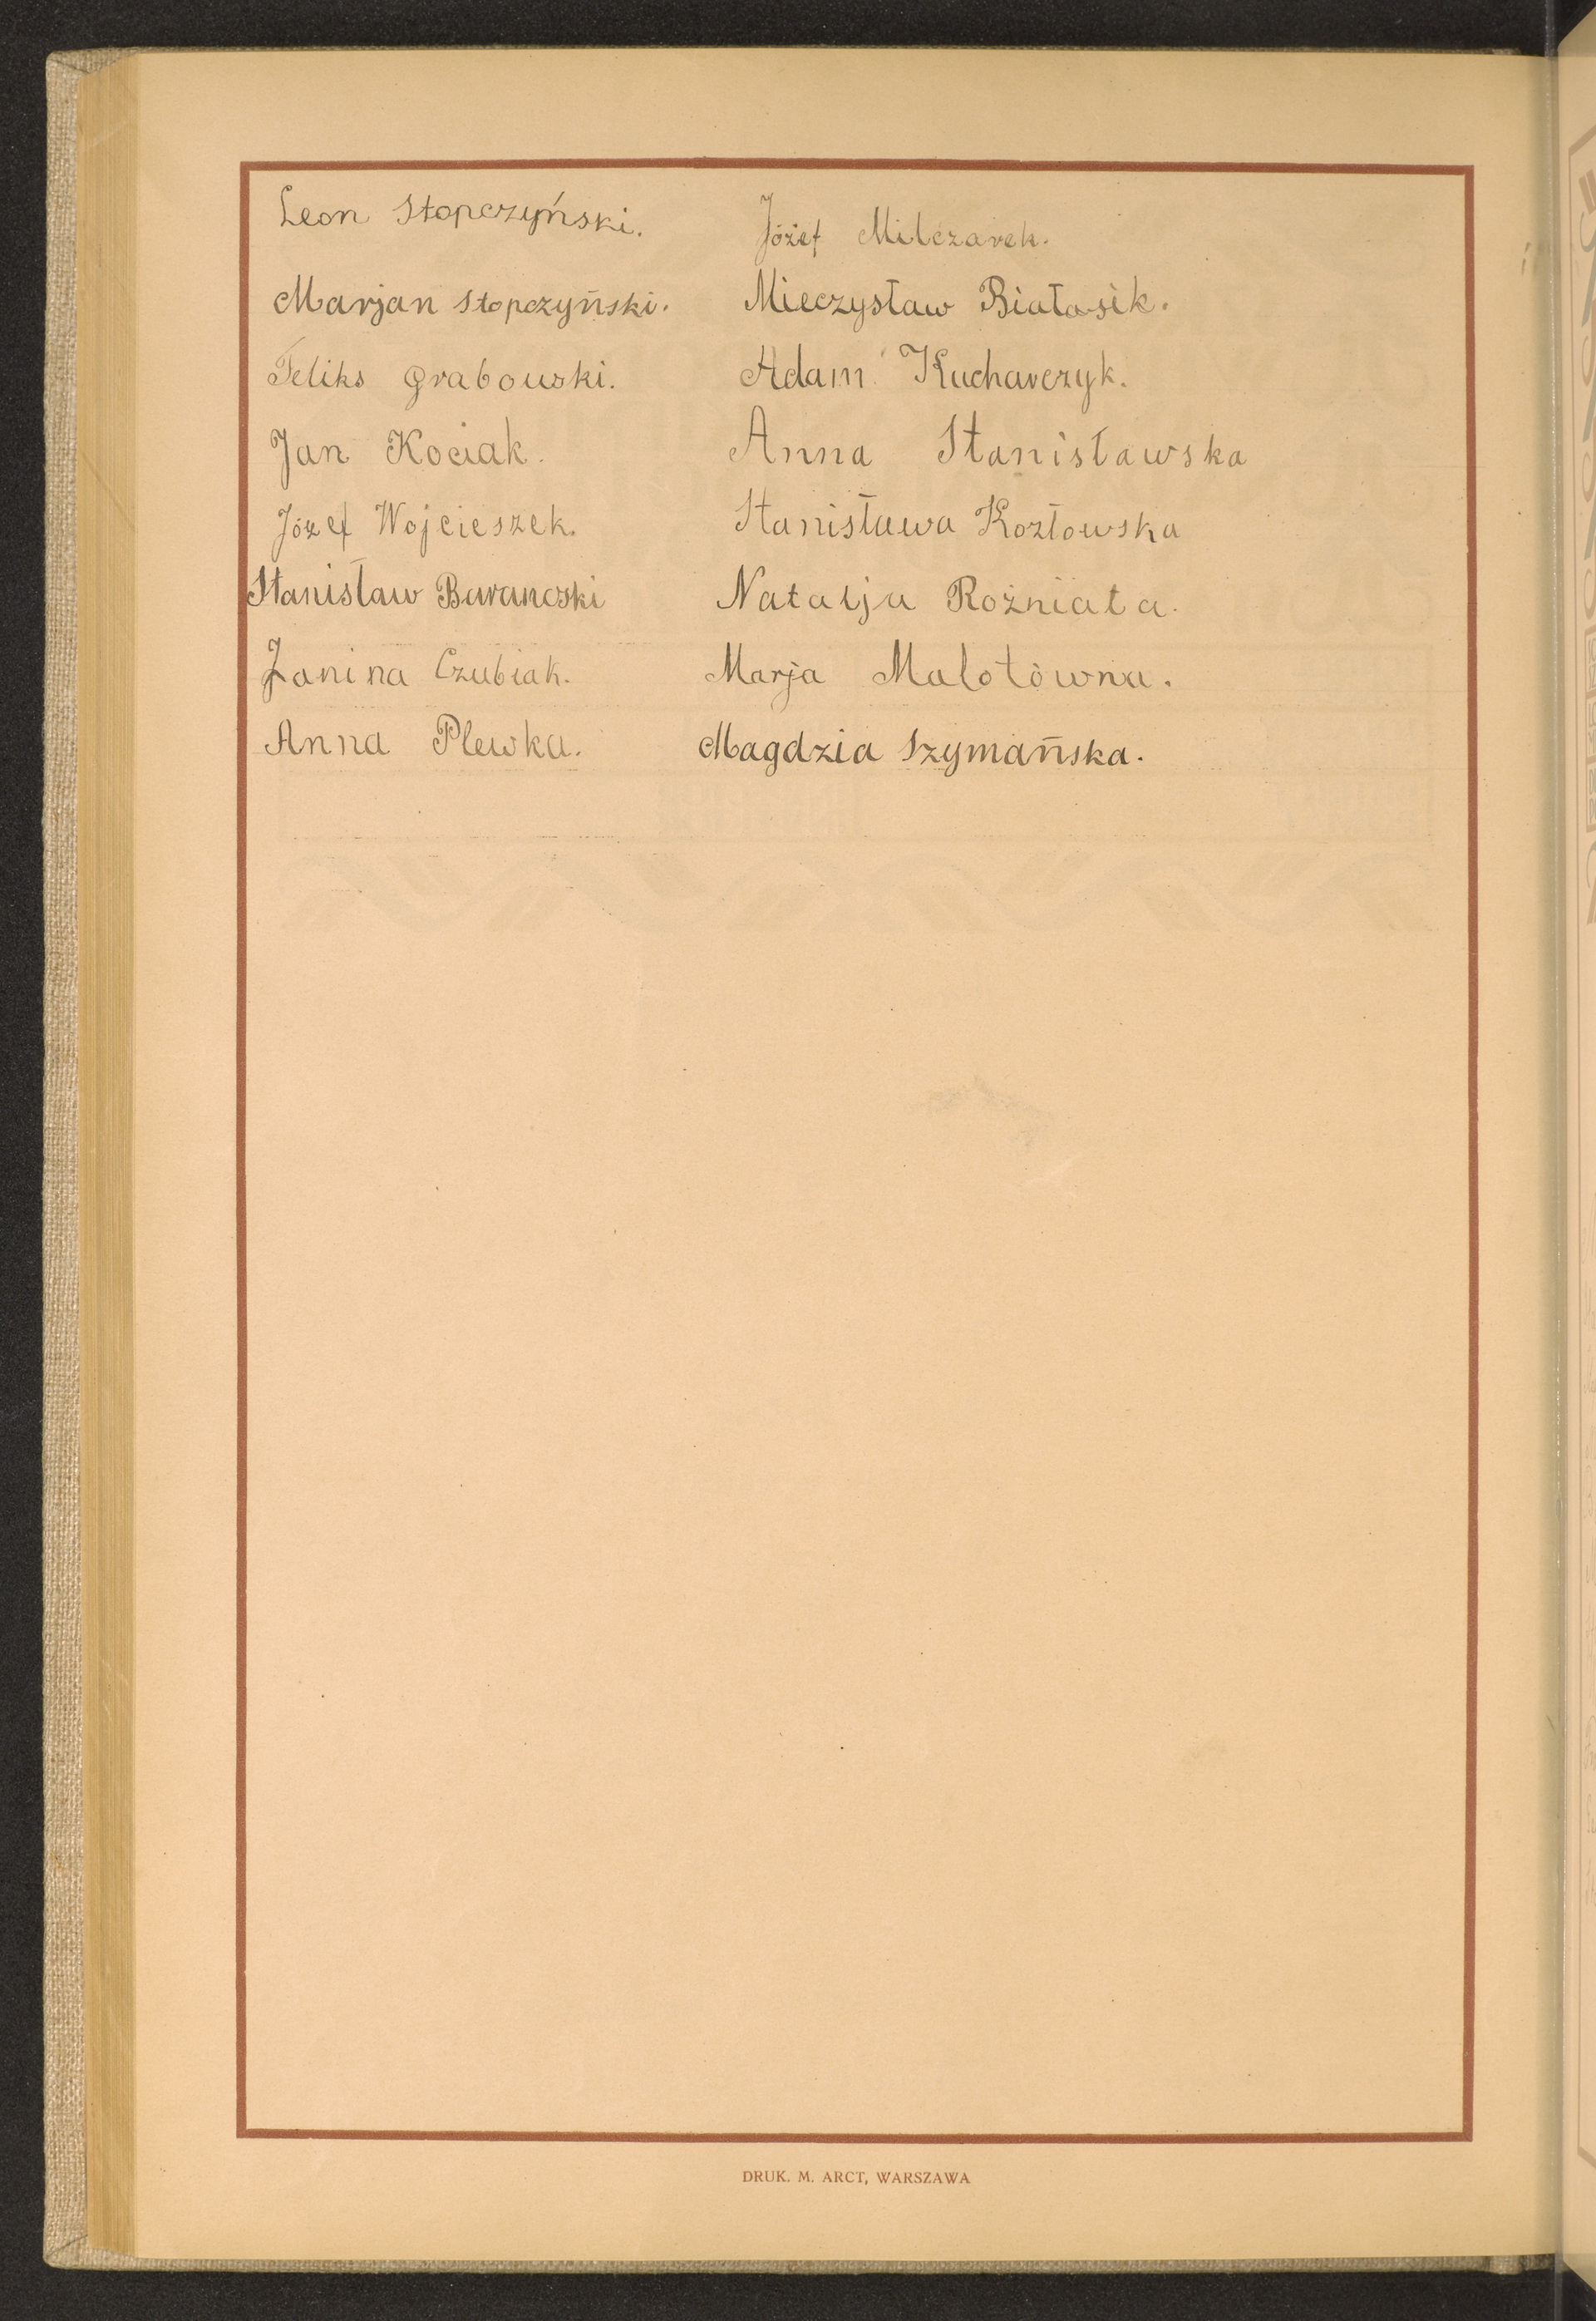 Leon Stopczyński.
Marjan Stopczyński.
Feliks Grabowski.
Jan Kociak.
Józef Wojcieszek.
Stanisław Baranoski
Janina Czubiak.
Anna Plewka.
Józef Milczarek.
Mieczysław Białasik.
Adam Kucharczyk.
Anna Stanisławska
Stanisława Kozłowska
Natalja Rożniata.
Marja Malotówna.
Magdzia Szymańska.
DRUK. M. ARCT, WARSZAWA